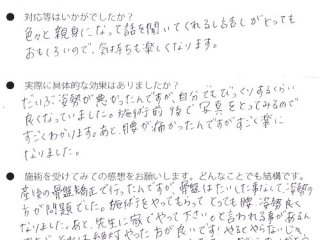 ● 対応等はいかがでしたか？
色々と親身になって話を聞いてくれるし話しがとっても
おもしろいので、気持ちも楽しくなります。
● 実際に具体的な効果はありましたか？
だいぶ姿勢が悪かったんですが、自分でもびっくりするくらい
良くなっていました。施術前後で写真をとってみるので
すごくわかります。あと腰が痛かったんですがすごく楽に
なりました。
● 施術を受けてみての感想をお願いします。どんなことでも結構です。
産後の骨盤矯正で行ったんですが、骨盤はたいした事なくて、姿勢の
方が問題でした。施術をやってもらってとっても腰、姿勢良く
なりました。あと、先生に家でやって下さいと言われる事があるん
絶対やった方が良いです！やるとやらないじゃ